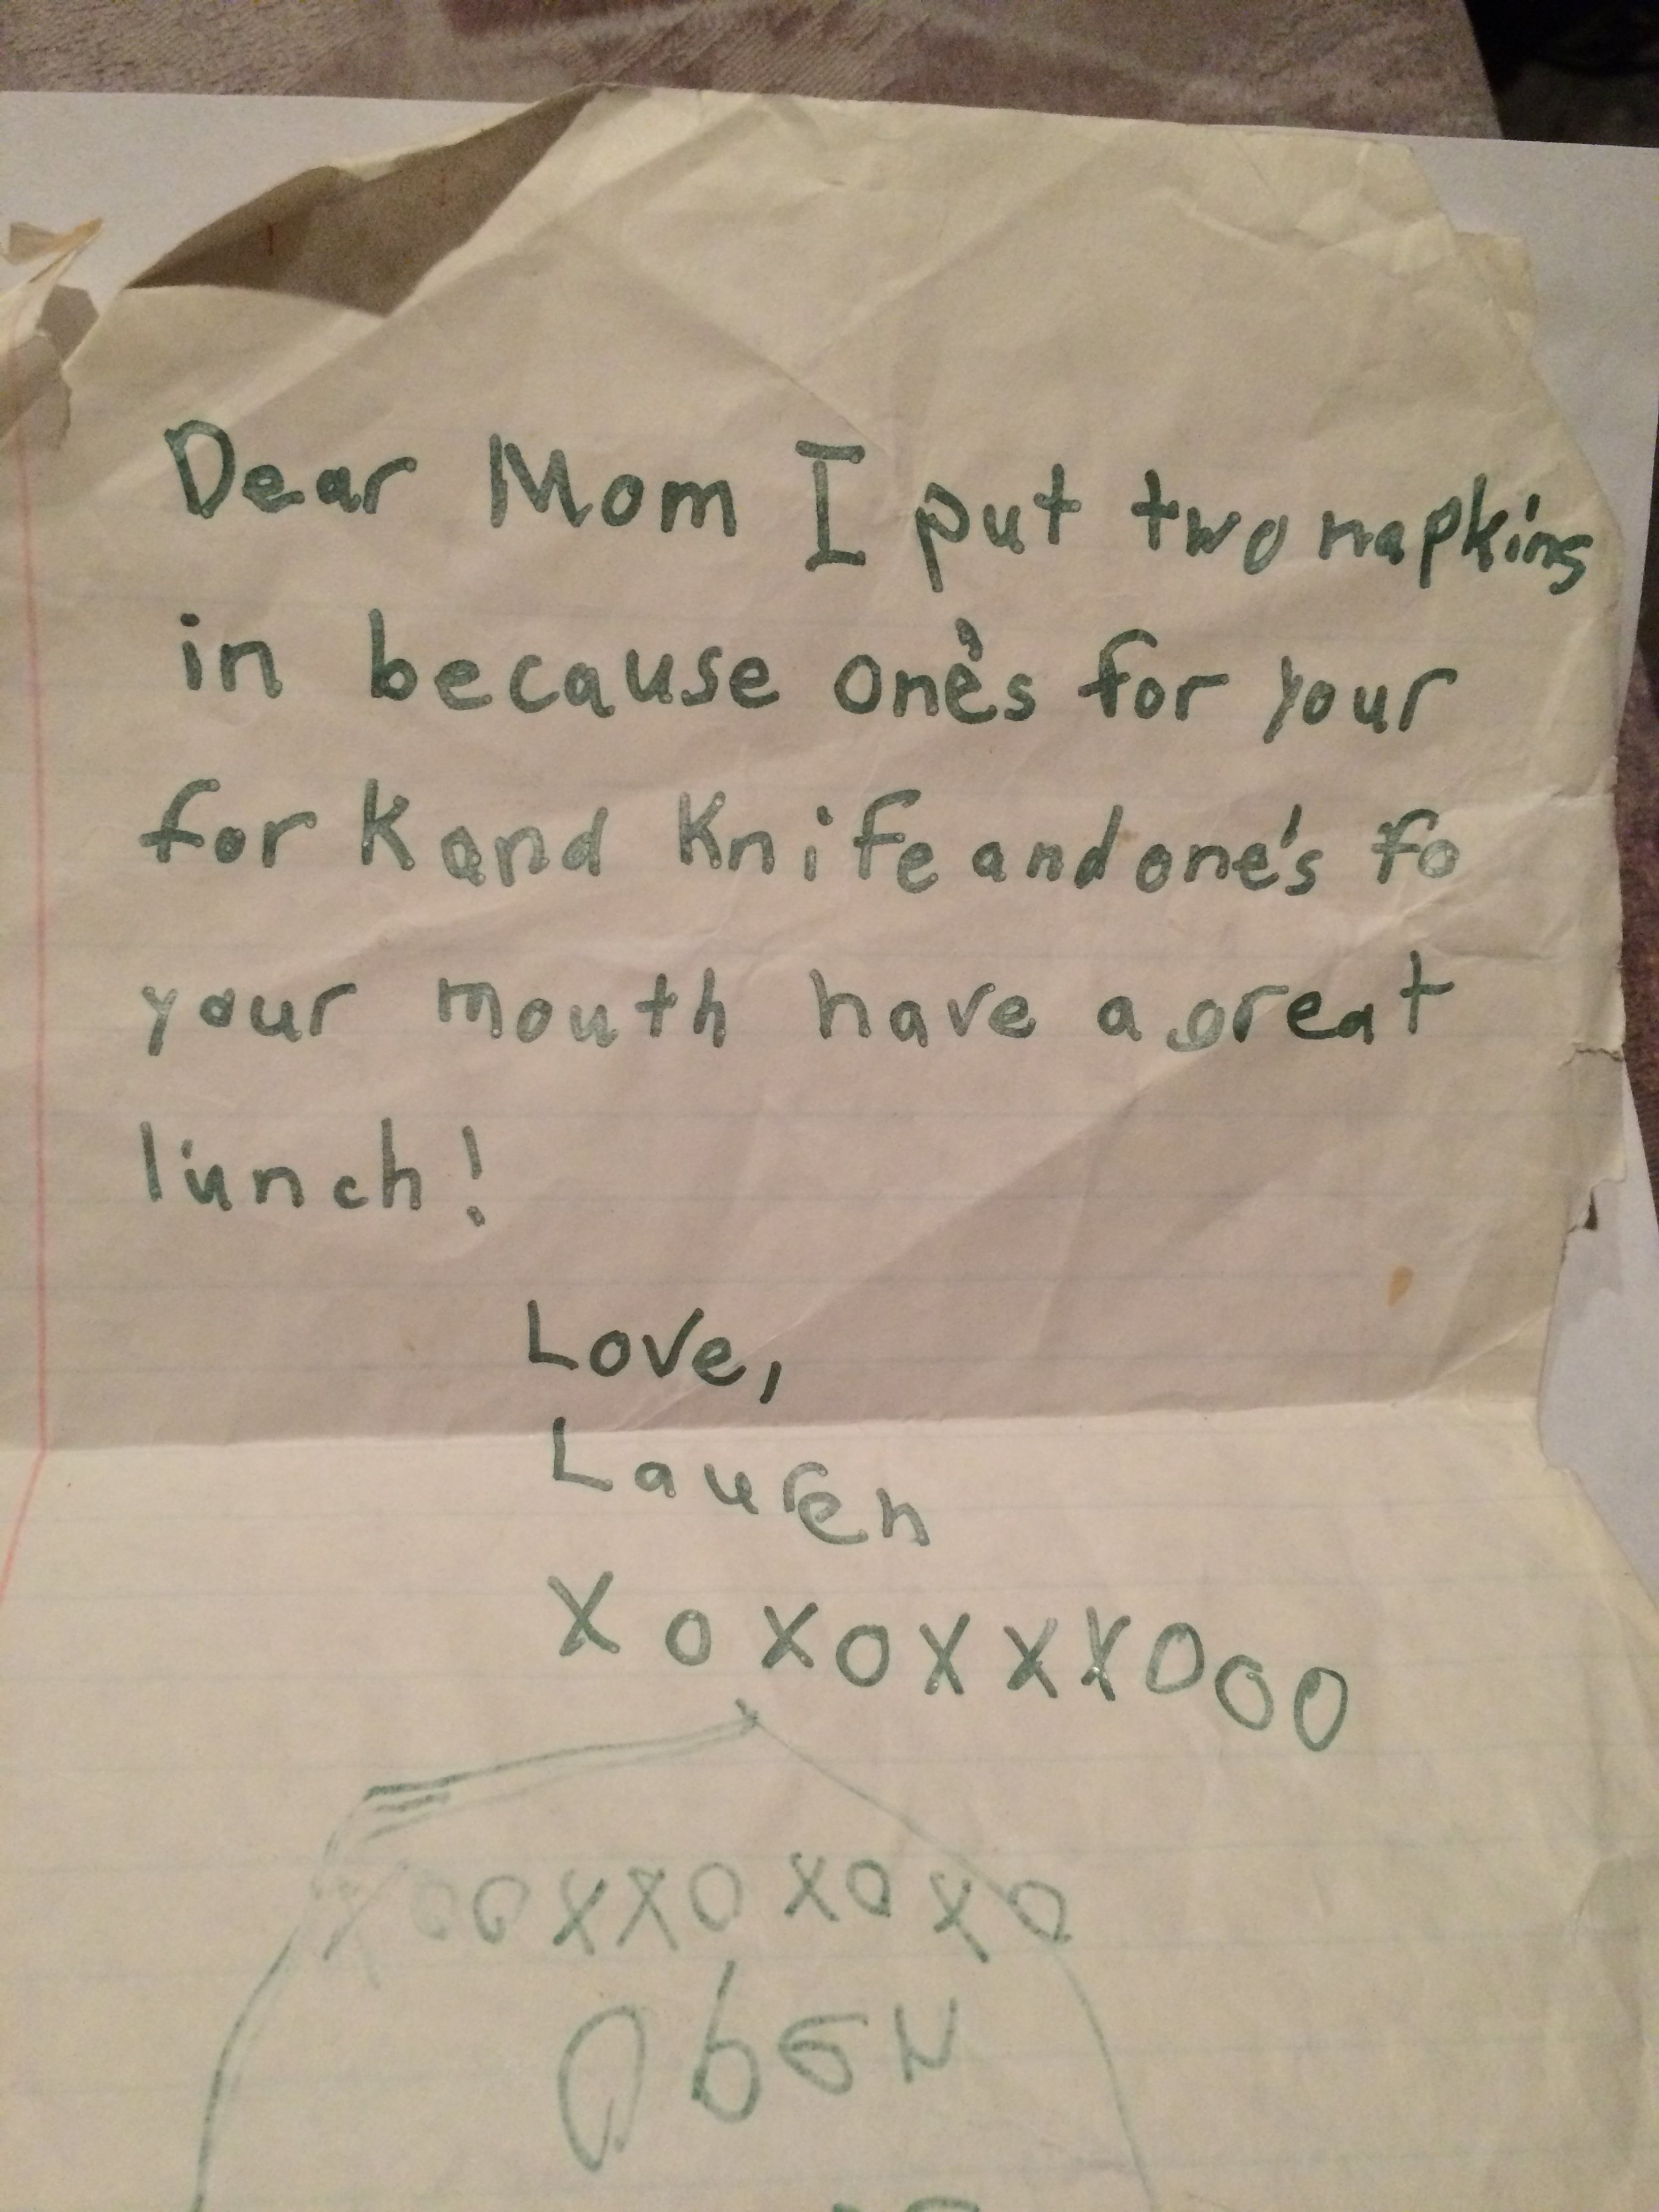 Dear Mom I put two napkins
in because one's for your
for k and knife and one's fo
your mouth have a great
lunch!
Love,
Lauren
XOXOXXXOOO
XOOXXOXOXO
Open